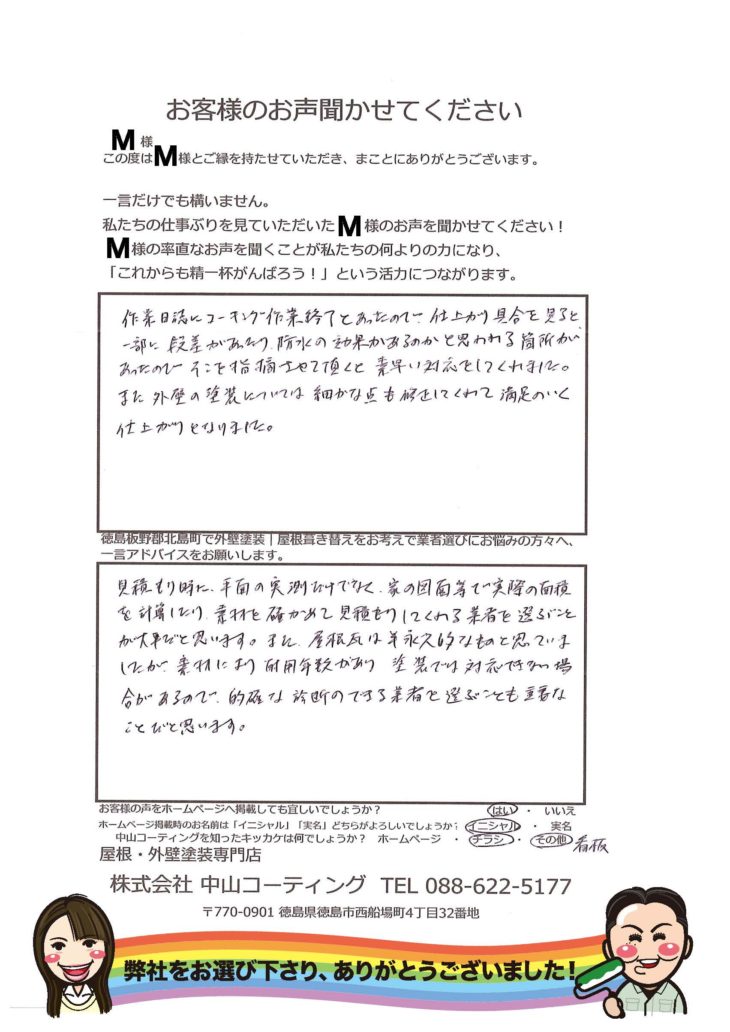 お客様のお声聞かせてください
M 様
この度はM様とご縁を持たせていただき、まことにありがとうございます。
一言だけでも構いません。
私たちの仕事ぶりを見ていただいたM様のお声を聞かせてください！
M様の率直なお声を聞くことが私たちの何よりの力になり、
「これからも精一杯がんばろう！」という活力につながります。
作業日誌にコーキング作業終了とあったので 仕上がり具合を見ると
一部に段差があったり、防水の効果があるのかと思われる箇所が
あったので そこを指摘させて頂くと 素早い対応をしてくれました。
また 外壁の塗装については 細かな点も修正してくれて 満足のいく
仕上がりとなりました。
徳島板野郡北島町で外壁塗装｜屋根葺き替えをお考えで業者選びにお悩みの方々へ、
一言アドバイスをお願いします。
見積もり時に、平面の実測だけでなく、家の図面等で実際の面積
を計算したり、素材を確かめて見積もりしてくれる業者を選ぶこと
が大事だと思います。また、屋根瓦は半永久的なものと思っていま
したが、素材により耐用年数があり 塗装では対応できない場
合があるので、的確な診断のできる業者を選ぶことも重要な
ことだと思います。
お客様の声をホームページへ掲載しても宜しいでしょうか？ はい ・ いいえ
ホームページ掲載時のお名前は「イニシャル」「実名」どちらがよろしいでしょうか？ イニシャル ・ 実名
中山コーティングを知ったキッカケは何でしょうか？ ホームページ ・ チラシ ・ その他 看板
屋根・外壁塗装専門店
株式会社 中山コーティング TEL 088-622-5177
〒770-0901 徳島県徳島市西船場町4丁目32番地
弊社をお選び下さり、ありがとうございました！